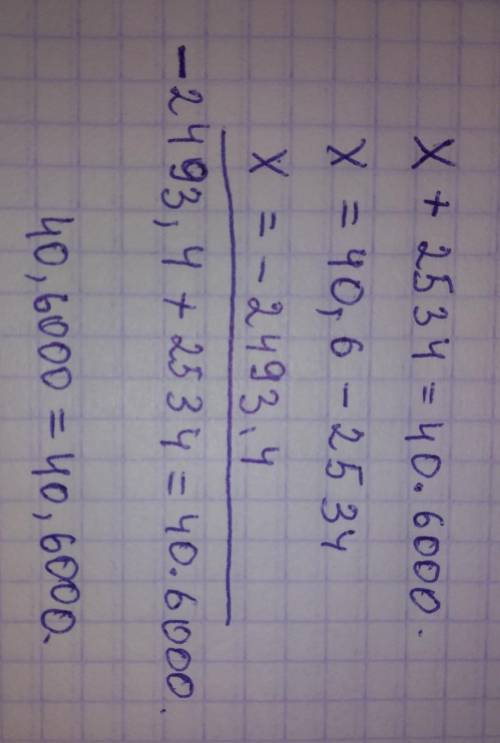 X + 2534 = 40.6000.
X = 40,6 - 2534
X = - 2493,4
- 2493,4 + 2534 = 40.6000.
40,6000 = 40,6000.